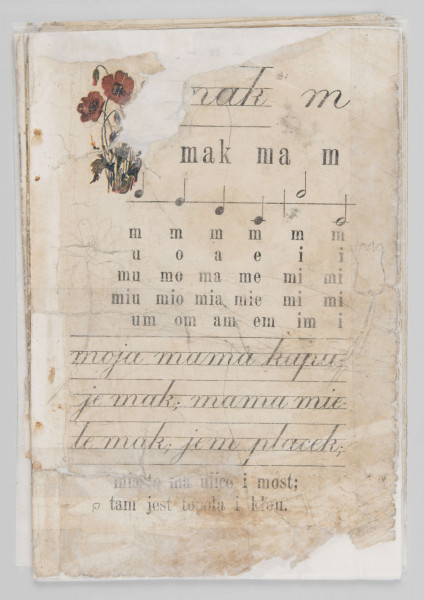 mak m
mak ma m
m m m m m m
u o a e i i
mu mo ma me mi mi
miu mio mia mie mi mi
um om am em im i
moja mama kupu-
je mak; mama mie-
le mak; jem placek;
miasto ma ulice i most;
tam jest topola i klon.